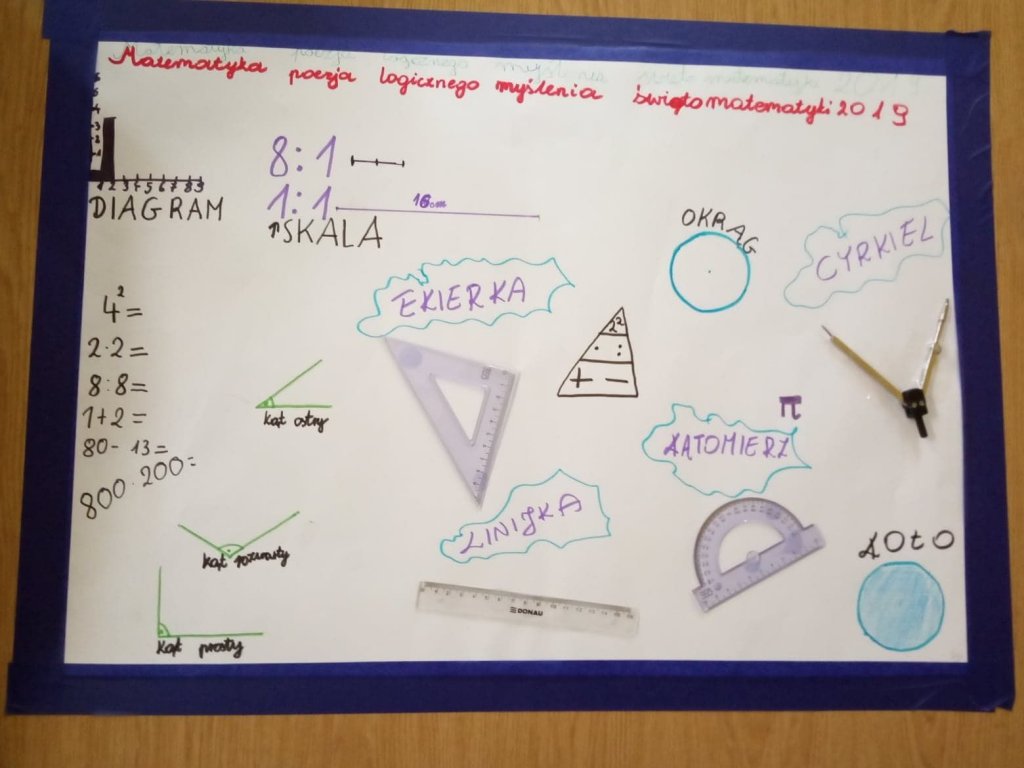 Matematyka poezja logicznego myślenia święto matematyki 2019
1 2 3 4 5 6 7 8 9
DIAGRAM
8:1
1:1
16cm
↑SKALA
OKRĄG
CYRKIEL
EKIERKA
2²
· :
+ −
4²=
2·2=
8:8=
1+2=
80-13=
800·200=
kąt ostry
π
KĄTOMIERZ
LINIJKA
kąt rozwarty
KOŁO
DONAU
kąt prosty